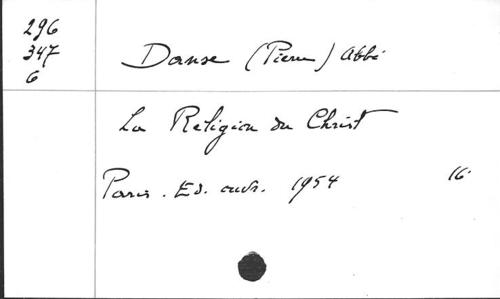 296
347
6
Danse (Pierre) Abbé
La Religion du Christ
Paris. Ed. ouvr. 1954 16